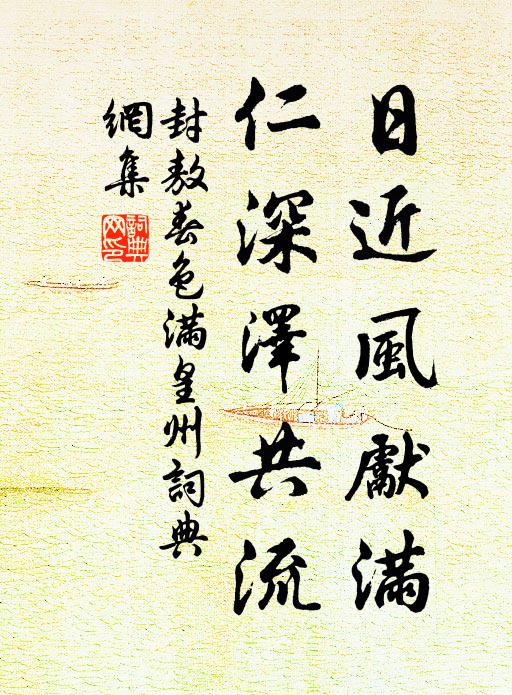 日近風獻滿
仁深澤共流
封敖春色滿皇州詞典
網集
詞典
网印